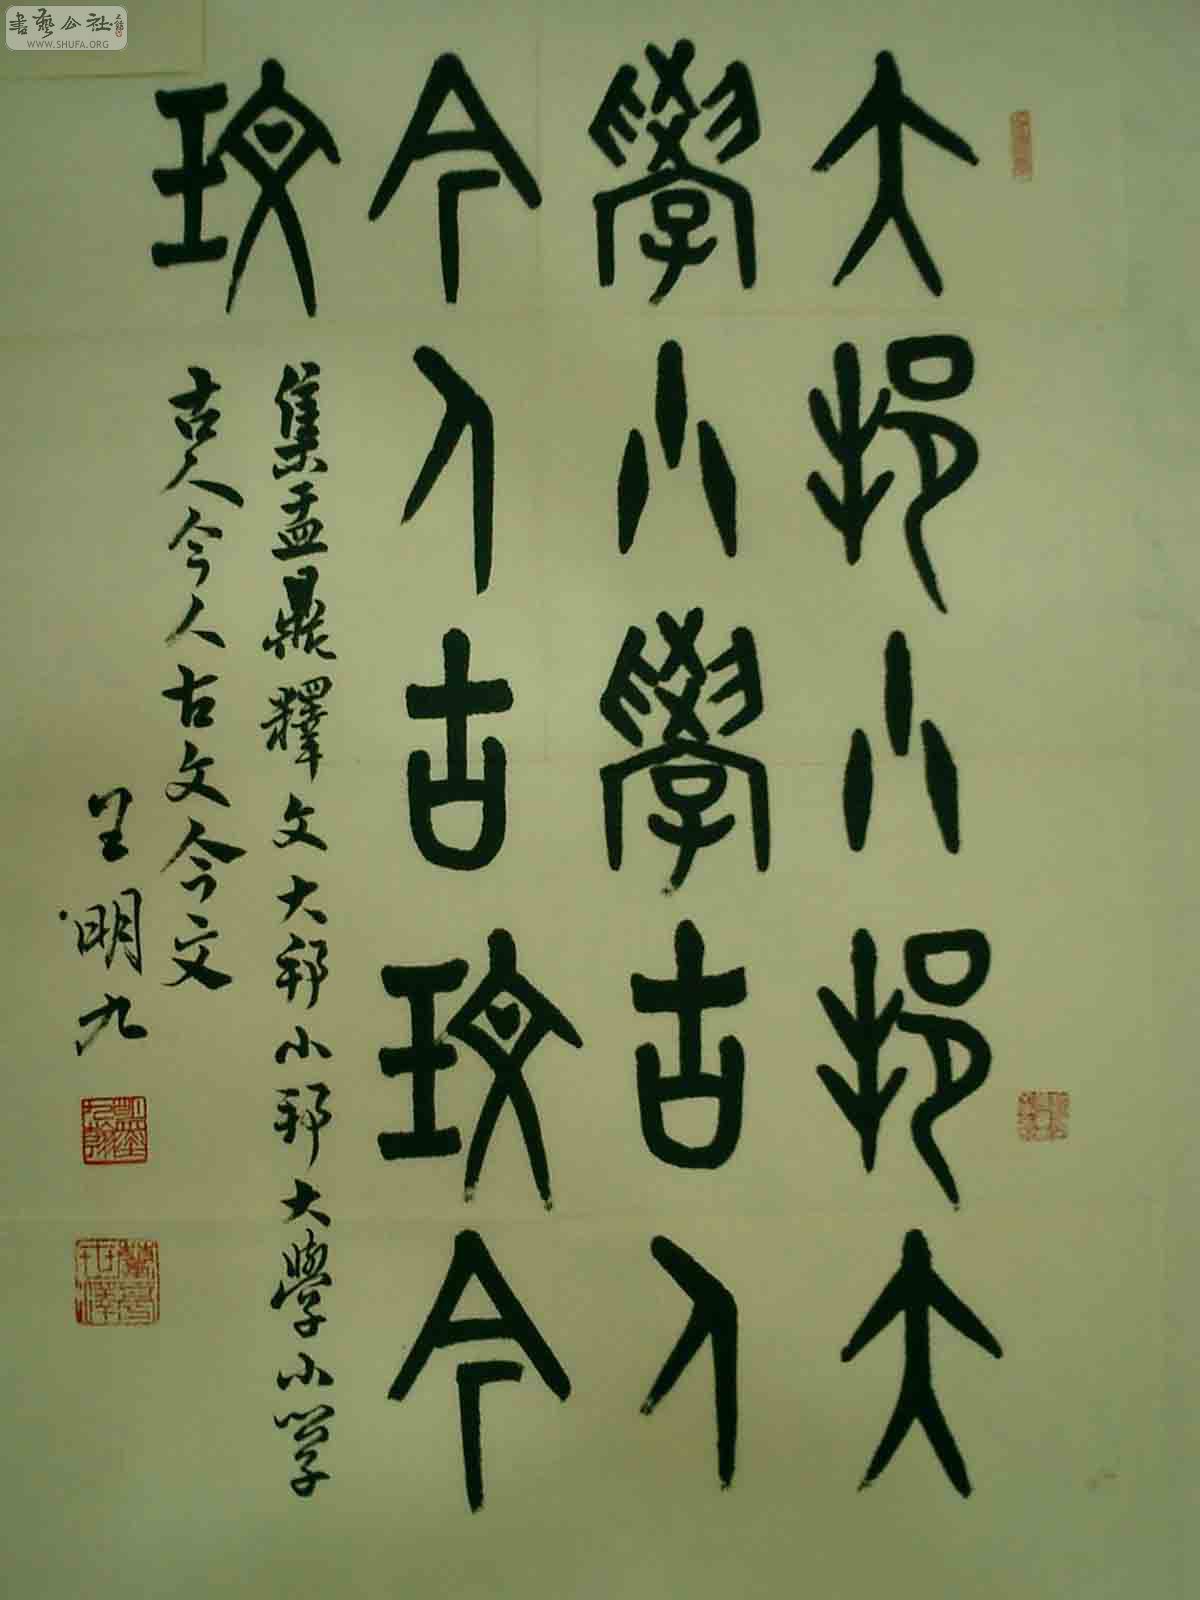 大邦小邦大
學小學古人
今人古玟今
玟
集盂鼎釋文大邦小邦大學小学
古人今人古文今文
呈明九
書藝公社
WWW.SHUFA.ORG